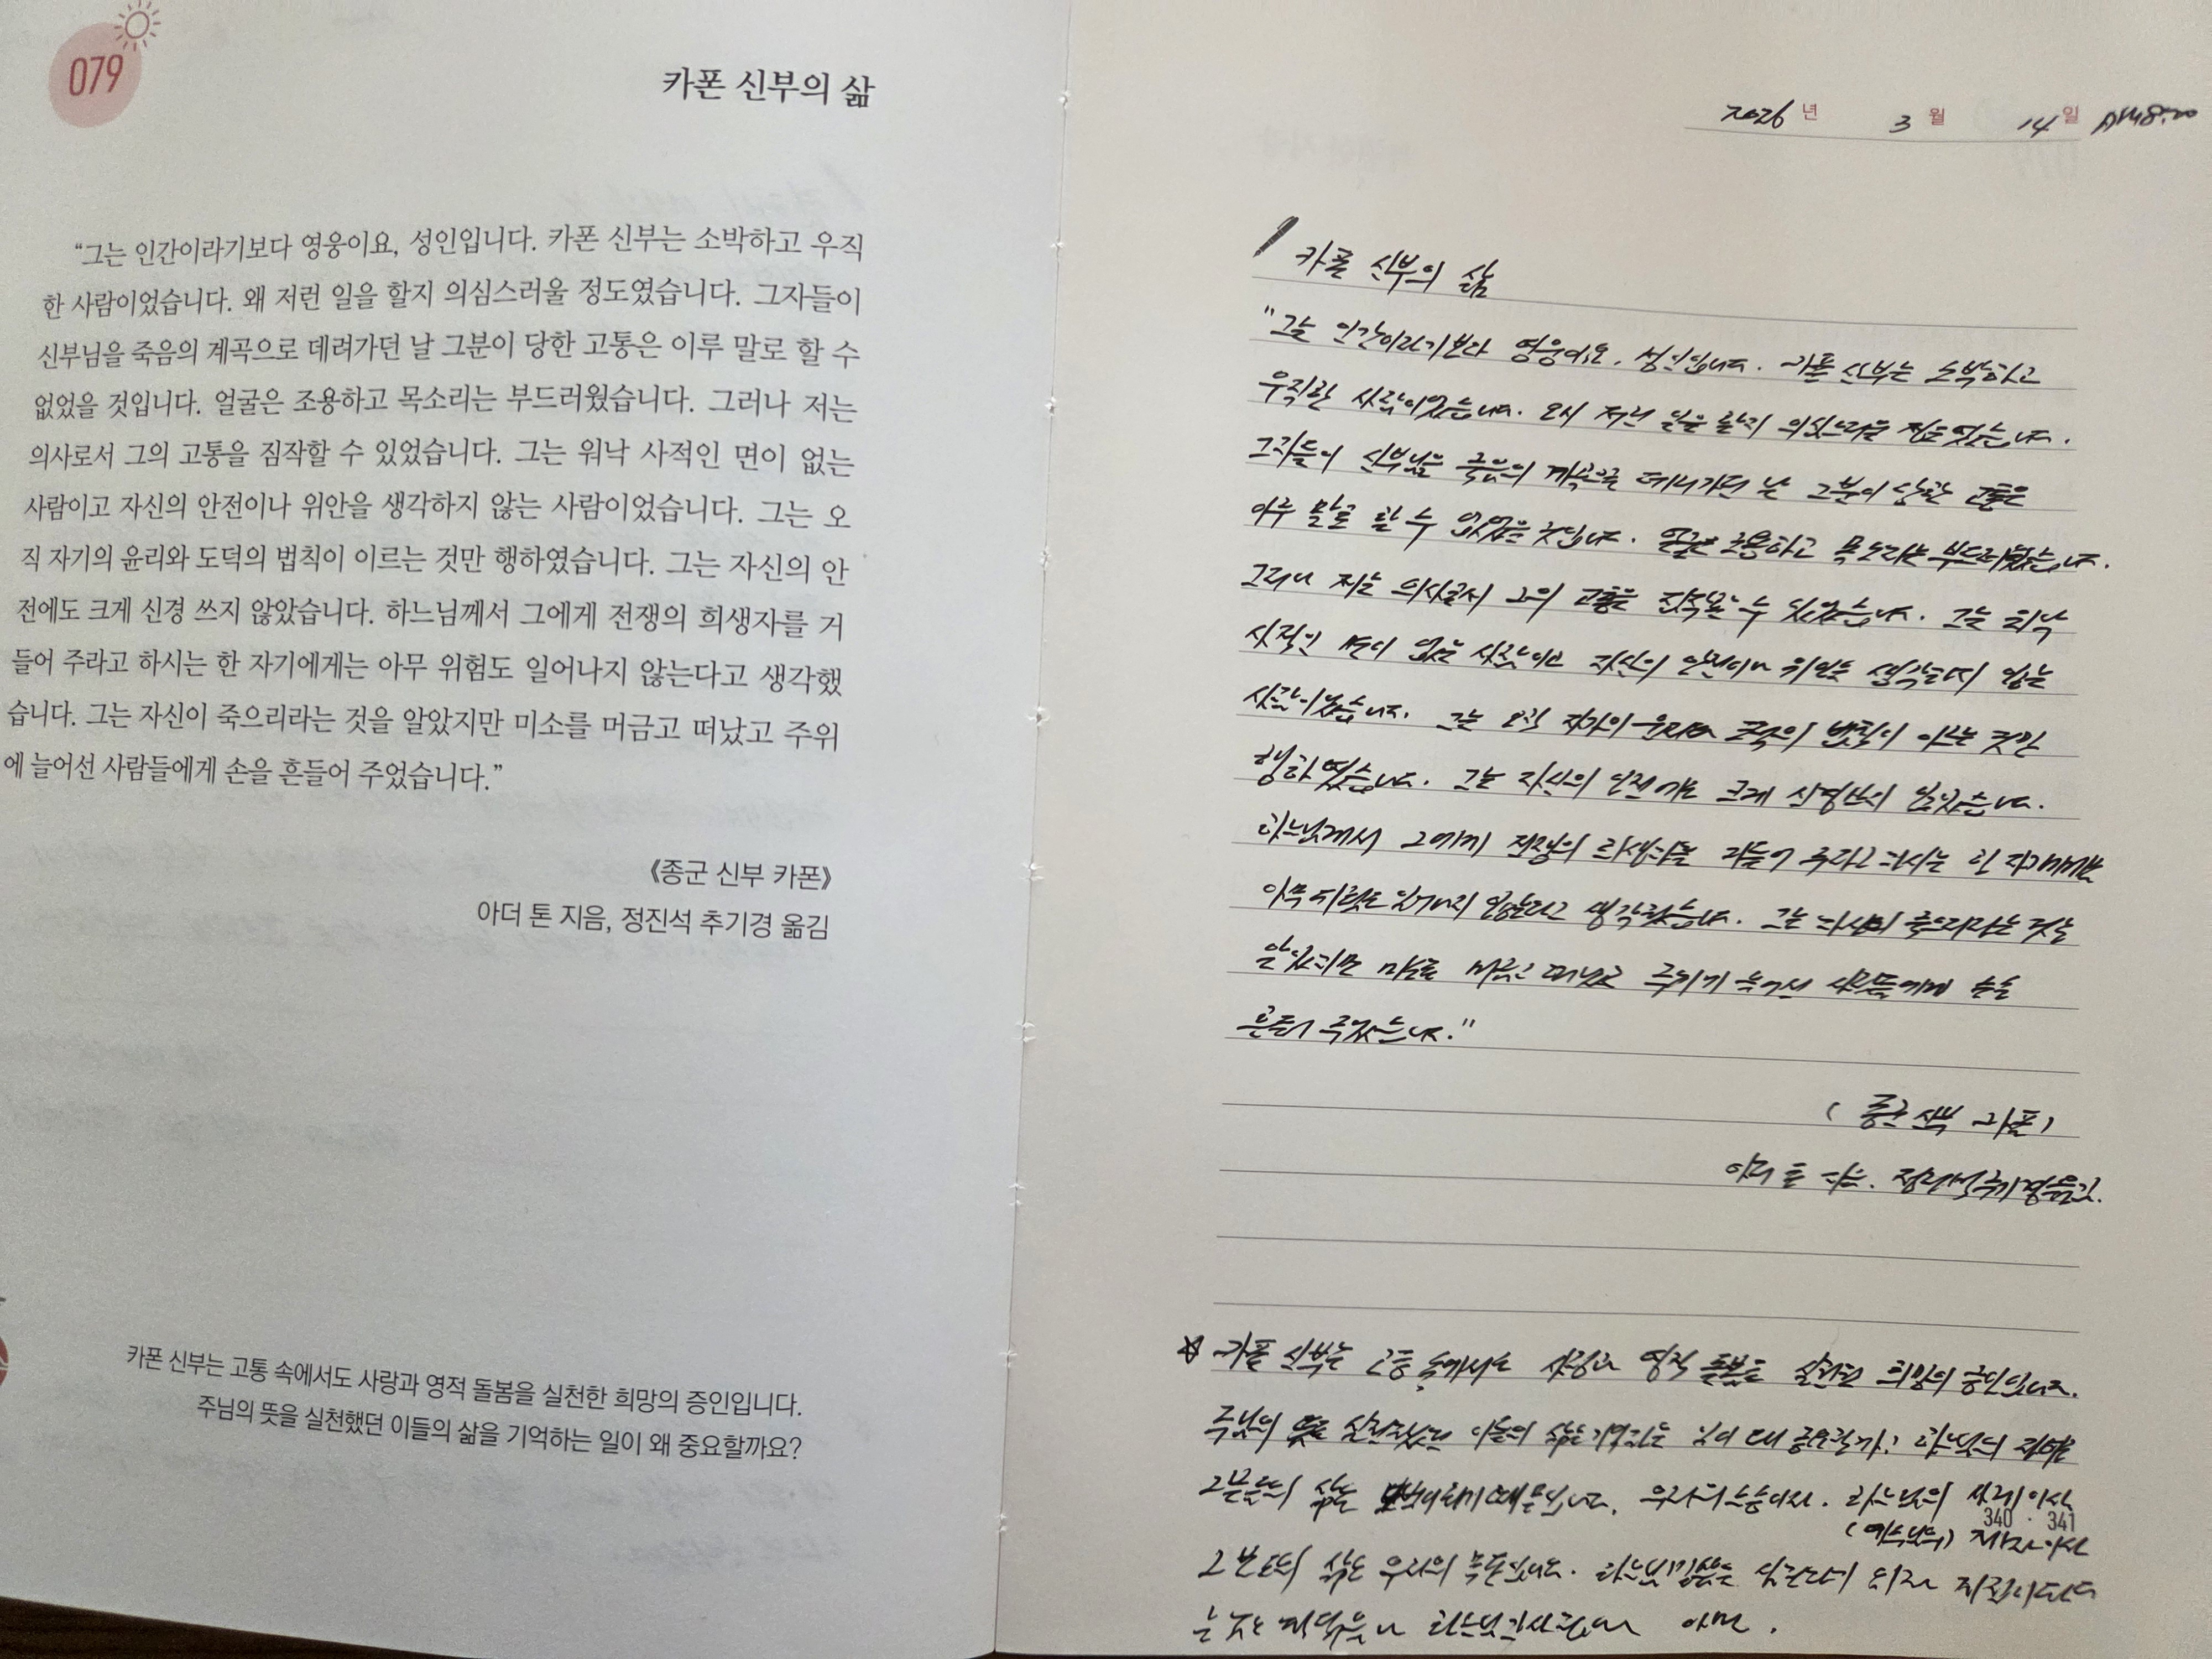 079
카폰 신부의 삶
“그는 인간이라기보다 영웅이요, 성인입니다. 카폰 신부는 소박하고 우직
한 사람이었습니다. 왜 저런 일을 할지 의심스러울 정도였습니다. 그자들이
신부님을 죽음의 계곡으로 데려가던 날 그분이 당한 고통은 이루 말로 할 수
없었을 것입니다. 얼굴은 조용하고 목소리는 부드러웠습니다. 그러나 저는
의사로서 그의 고통을 짐작할 수 있었습니다. 그는 워낙 사적인 면이 없는
사람이고 자신의 안전이나 위안을 생각하지 않는 사람이었습니다. 그는 오
직 자기의 윤리와 도덕의 법칙이 이르는 것만 행하였습니다. 그는 자신의 안
전에도 크게 신경 쓰지 않았습니다. 하느님께서 그에게 전쟁의 희생자를 거
들어 주라고 하시는 한 자기에게는 아무 위험도 일어나지 않는다고 생각했
습니다. 그는 자신이 죽으리라는 것을 알았지만 미소를 머금고 떠났고 주위
에 늘어선 사람들에게 손을 흔들어 주었습니다.”
《종군 신부 카폰》
아더 톤 지음, 정진석 추기경 옮김
카폰 신부는 고통 속에서도 사랑과 영적 돌봄을 실천한 희망의 증인입니다.
주님의 뜻을 실천했던 이들의 삶을 기억하는 일이 왜 중요할까요?
2026 년 3 월 14 일 AM8:00
카폰 신부의 삶
"그는 인간이라기보다 영웅이요, 성인입니다. 카폰 신부는 소박하고
우직한 사람이었습니다. 왜 저런 일을 할지 의심스러울 정도였습니다.
그자들이 신부님을 죽음의 계곡으로 데려가던 날 그분이 당한 고통은
이루 말로 할 수 없었을 것입니다. 얼굴은 조용하고 목소리는 부드러웠습니다.
그러나 저는 의사로서 그의 고통을 짐작할 수 있었습니다. 그는 워낙
사적인 면이 없는 사람이고 자신의 안전이나 위안을 생각하지 않는
사람이었습니다. 그는 오직 자기의 윤리와 도덕의 법칙이 이르는 것만
행하였습니다. 그는 자신의 안전에도 크게 신경쓰지 않았습니다.
하느님께서 그에게 전쟁의 희생자를 거들어 주라고 하시는 한 자기에게는
아무 위험도 일어나지 않는다고 생각했습니다. 그는 자신이 죽으리라는 것을
알았지만 미소를 머금고 떠났고 주위에 늘어선 사람들에게 손을
흔들어 주었습니다."
(종군 신부 카폰)
아더 톤 지음, 정진석 추기경 옮김.
카폰 신부는 고통 속에서도 사랑과 영적 돌봄을 실천한 희망의 증인입니다.
주님의 뜻을 실천했던 이들의 삶을 기억하는 일이 왜 중요할까? 하느님의
그분들의 삶은 때문입니다. 하느님의
340 · 341
(예수님의)
그분들의 삶은 우리의
아멘.